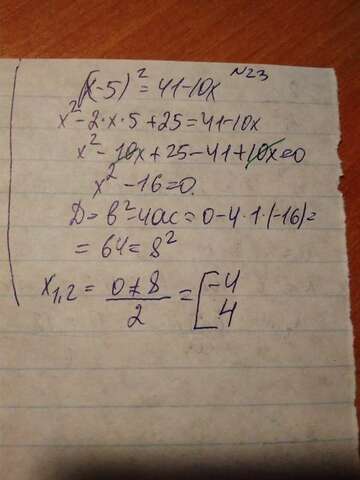 №23
(x-5)² = 41-10x
x²-2·x·5+25=41-10x
x²-10x+25-41+10x=0
x²-16=0.
D=b²-4ac=0-4·1·(-16)=
=64=8²
x1,2 = 0±8/2 = [-4 4